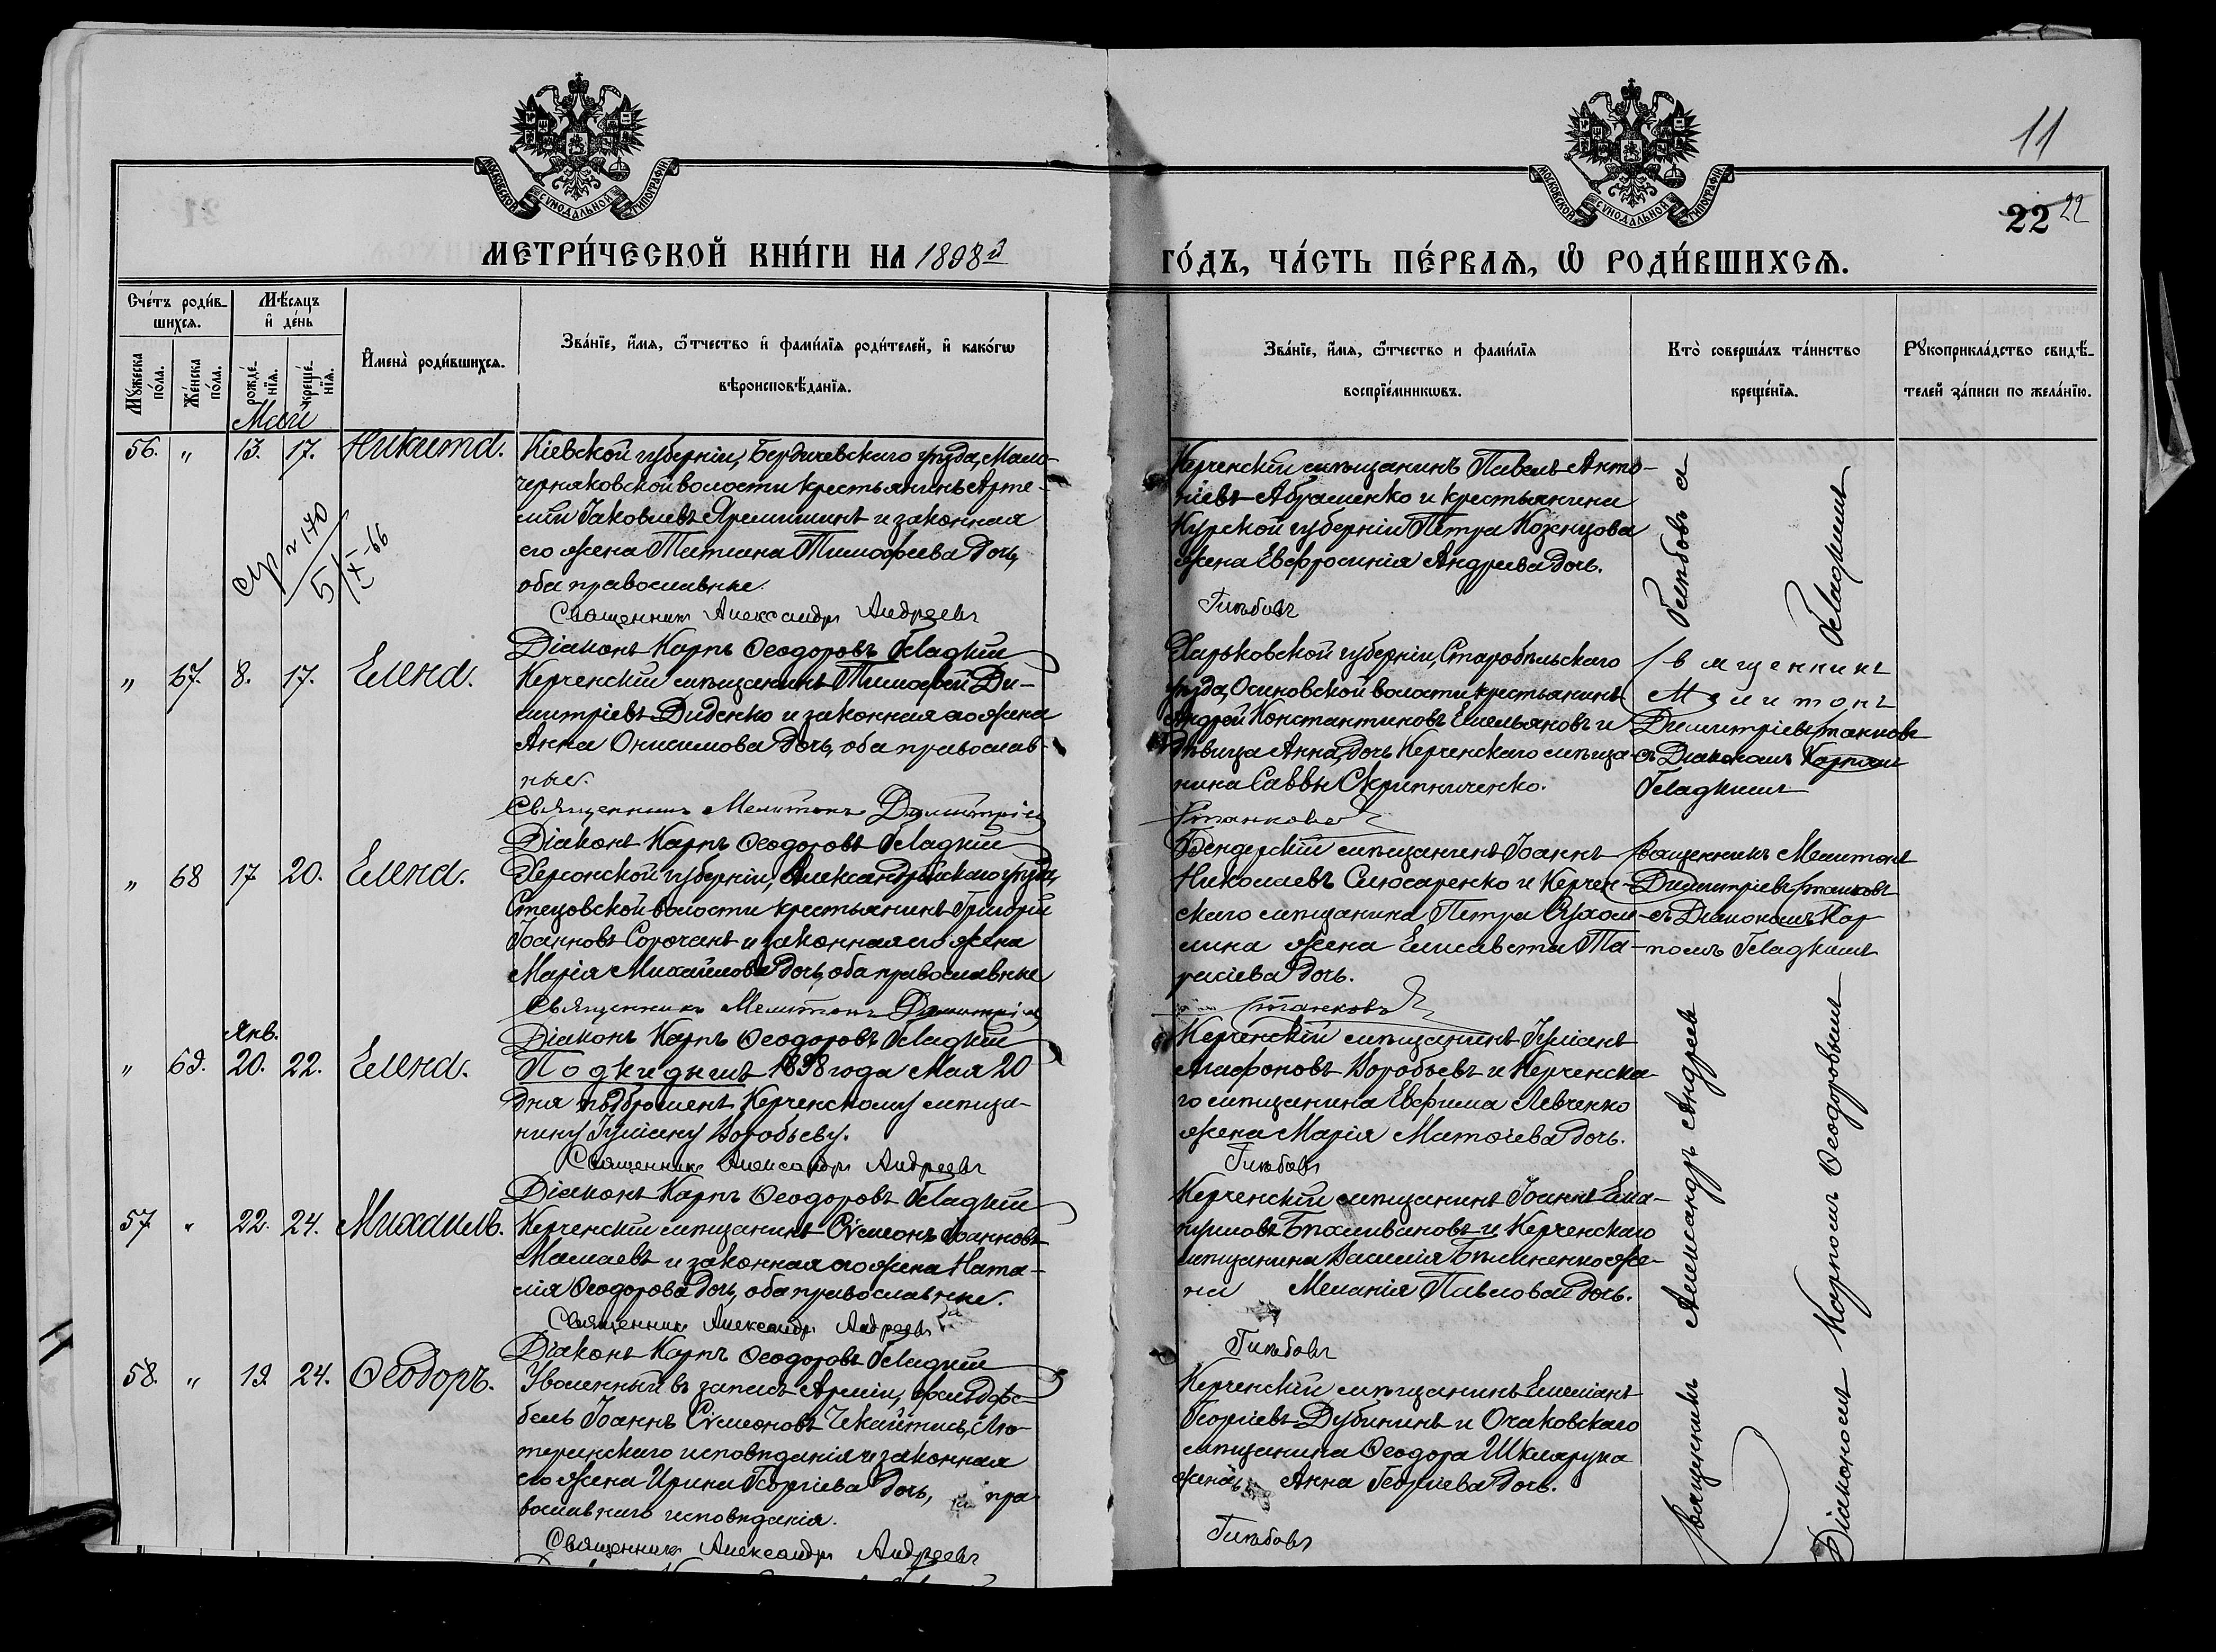 11
22 22
МОСКОВСКОЙ СУНОДАЛЬНОЙ ТИПОГРАФІИ
МОСКОВСКОЙ СУНОДАЛЬНОЙ ТИПОГРАФІИ
МЕТРИ́ЧЕСКОЙ КНИ́ГИ НА 1898й ГО́ДЪ, ЧА́СТЬ ПЕ́РВАѦ, Ѡ РОДИ́ВШИХСѦ.
Сче́тъ роди́в-
шихсѧ.
Мѣ́сѧцъ
и҆ де́нь
Мꙋ́жеска по́ла.
Же́нска по́ла.
рожде́-
нїѧ.
креще́-
нїѧ.
И҆мена̀ роди́вшихсѧ.
Зва́нїе, и҆́мѧ, ѻ҆́тчество и҆ фами́лїѧ роди́телей, и҆ како́гѡ
вѣроисповѣ́данїѧ.
Зва́нїе, и҆́мѧ, ѻ҆́тчество и фами́лїѧ
воспрїе́мникѡвъ.
Кто̀ соверша́лъ та́инство
креще́нїѧ.
Рꙋкоприкла́дство свидѣ́-
телей за́писи по жела́нїю.
Май
56. " 13. 17. Никита.
Кіевской губерніи, Бердичевскаго уѣзда, Мало-
черняковской волости крестьянинъ Арте-
мій Іаковлевъ и законная
его жена Татіана Тимоѳеева дочь,
оба православные.
Священникъ Александръ Андреевъ
Глѣбовъ
Діаконъ Карпъ Ѳеодоровъ Гладкій
Керченскій мѣщанинъ Павелъ Анто-
ніевъ Абраменко и крестьянина
Курской губерніи Петра Козенцова
жена Евфросинія Андреева дочь.
5/IX-66
" 67. 8. 17. Елена.
Керченскій мѣщанинъ Тимоѳей Ди-
митріевъ Диденко и законная его жена
Анна Онисимова дочь, оба православ-
ные.
Священникъ Мелитонъ Димитріевъ
Станковъ
Діаконъ Карпъ Ѳеодоровъ Гладкій
Харьковской губерніи, Старобѣльскаго
уѣзда, Осиновской волости крестьянинъ
Андрей Константиновъ Емельяновъ и
дѣвица Анна, дочь Керченскаго мѣща-
нина Саввы Скрипниченко.
Священникъ
Мелитонъ
Димитріевъ Станковъ
съ Діакономъ Карпомъ
Гладкимъ
" 68 17 20. Елена.
Херсонской губерніи, Александрійскаго уѣзда,
Стецовской волости крестьянинъ Григорій
Іоанновъ Сорочанъ и законная его жена
Марія Михайлова дочь, оба православные
Священникъ Мелитонъ Димитріевъ
Станковъ
Діаконъ Карпъ Ѳеодоровъ Гладкій
Бендерскій мѣщанинъ Іоаннъ
Николаевъ Слюсаренко и Керчен-
скаго мѣщанина Петра
жена Елисавета Та-
расіева дочь.
Священникъ Мелитонъ
Димитріевъ Станковъ
съ Діакономъ Кар-
помъ Гладкимъ
Янв.
" 69. 20. 22. Елена.
Подкидышъ 1898 года Мая 20
дня подброшенъ Керченскому мѣща-
нину Іуліану Воробьеву.
Священникъ Александръ Андреевъ
Глѣбовъ
Діаконъ Карпъ Ѳеодоровъ Гладкій
Керченскій мѣщанинъ Іуліанъ
Агафоновъ Воробьевъ и Керченска-
го мѣщанина Евфима Левченко
жена Марія Матѳіева дочь.
57 " 22. 24. Михаилъ.
Керченскій мѣщанинъ Сѵмеонъ Іоанновъ
Мамаевъ и законная его жена Ната-
лія Ѳеодорова дочь, оба православные.
Священникъ Александръ Андреевъ
Глѣбовъ
Діаконъ Карпъ Ѳеодоровъ Гладкій
Керченскій мѣщанинъ Іоаннъ
и Керченскаго
мѣщанина Василія же-
на Меланія Павлова дочь.
58. " 19. 24. Ѳеодоръ.
Уволенный въ запасъ Арміи, фельдфе-
бель Іоаннъ Сѵмеоновъ Лю-
теранскаго исповѣданія и законная
его жена Ирина Георгіева дочь, пра-
вославнаго исповѣданія.
Священникъ Александръ Андреевъ
Глѣбовъ
Керченскій мѣщанинъ Емеліанъ
Георгіевъ Дубининъ и Очаковскаго
мѣщанина Ѳеодора Шкларука
жена Анна Георгіева дочь.
Священникъ Александръ Андреевъ Глѣбовъ съ
Діакономъ Карпомъ Ѳеодоровымъ Гладкимъ